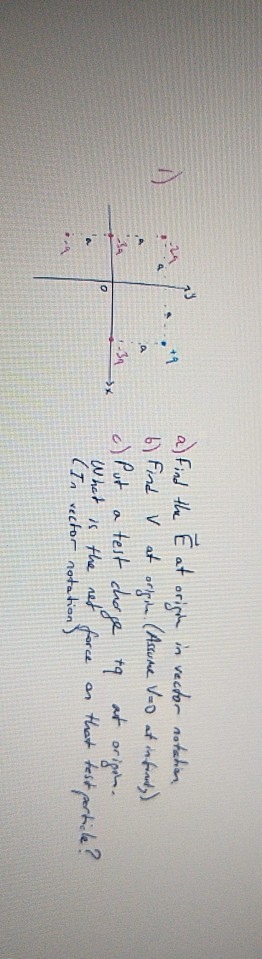 1)
y
-2q
a
a
+q
a
a
-3q
-3q
x
0
a
-q
a) Find the E⃗ at origin in vector notation
b) Find V at origin (Assume V=0 at infinity)
c) Put a test charge +q at origin.
What is the net force on that test particle?
(In vector notation)